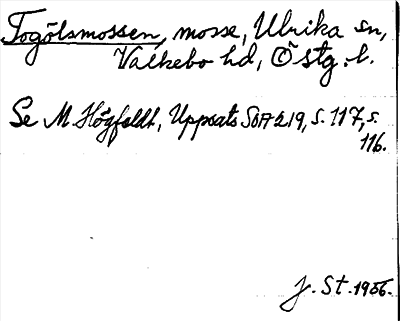 Togölsmossen, mosse, Ulrika sn,
Valkebo hd, Östg. l.
Se M. Högfeldt, Uppsats SOA 219, s. 117, s.
116.
J. St. 1956.